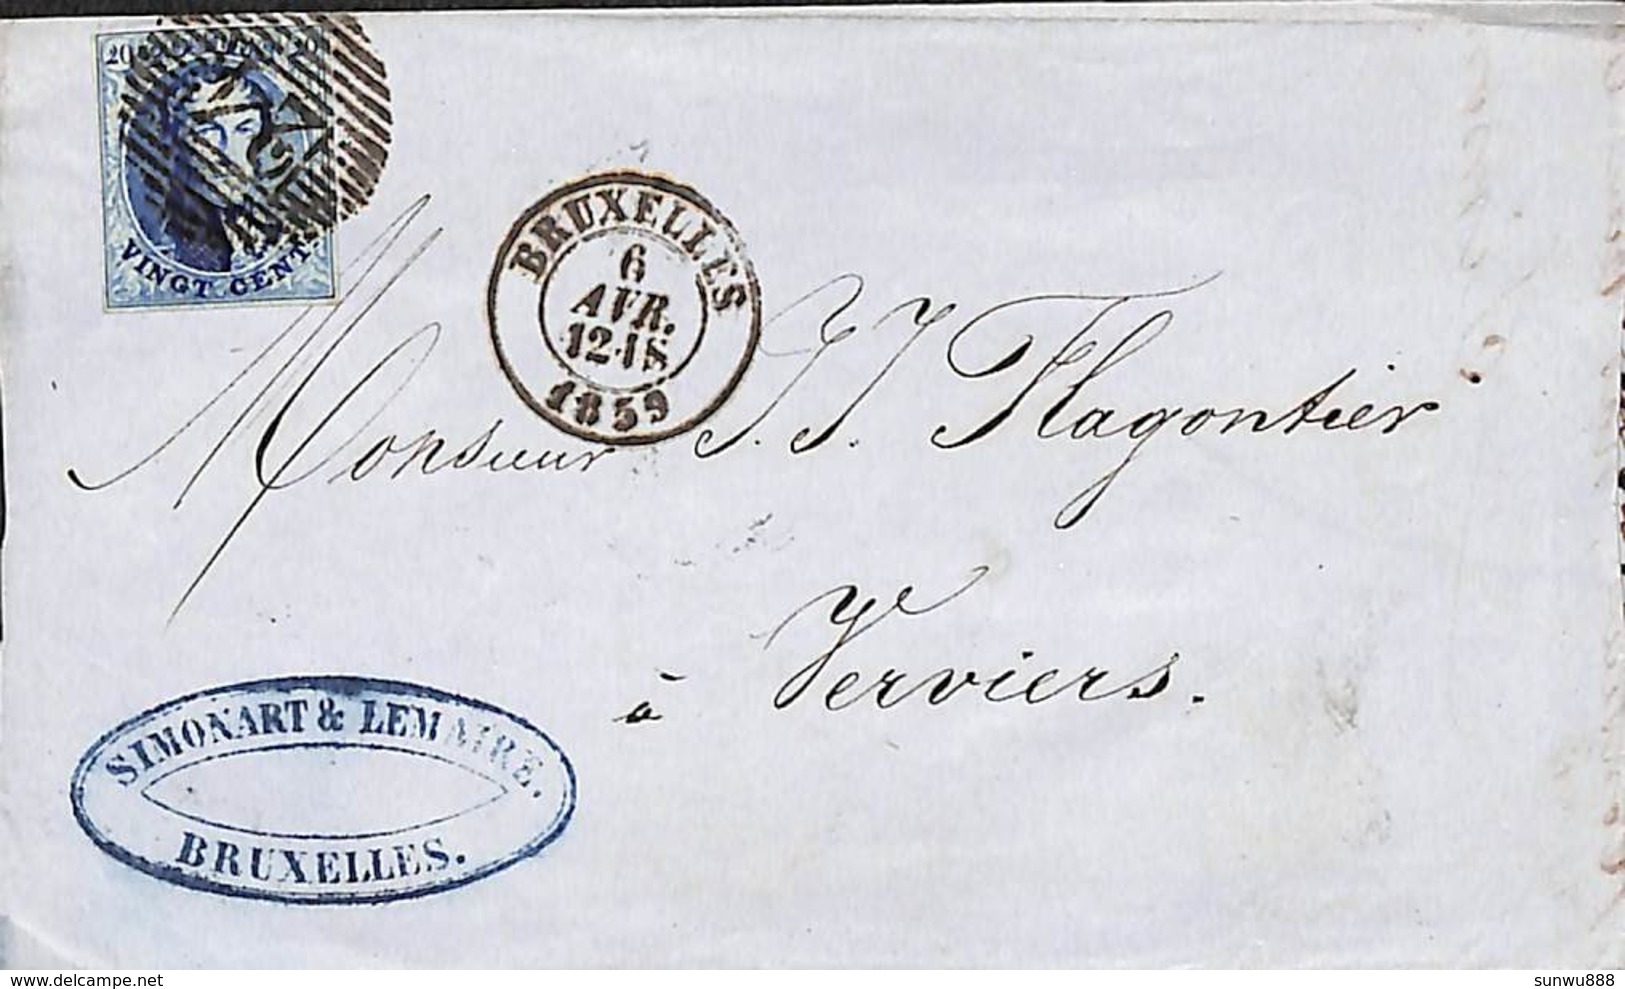 20 20
VINGT CENT.
BRUXELLES
6
AVR.
12-1S
1859
Monsieur J. J. Flagontier
à Verviers.
SIMONART & LEMAIRE.
BRUXELLES.
© delcampe.net
sunwu888